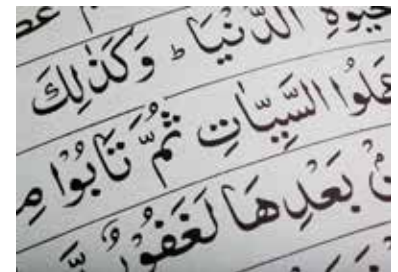 حَيٰوةِ الدُّنْيَا ؕ وَكَذٰلِكَ
عَمِلُوا السَّيِّاٰتِ ثُمَّ تَابُوْا مِ
بَعْدِهَا لَغَفُوْرٌ